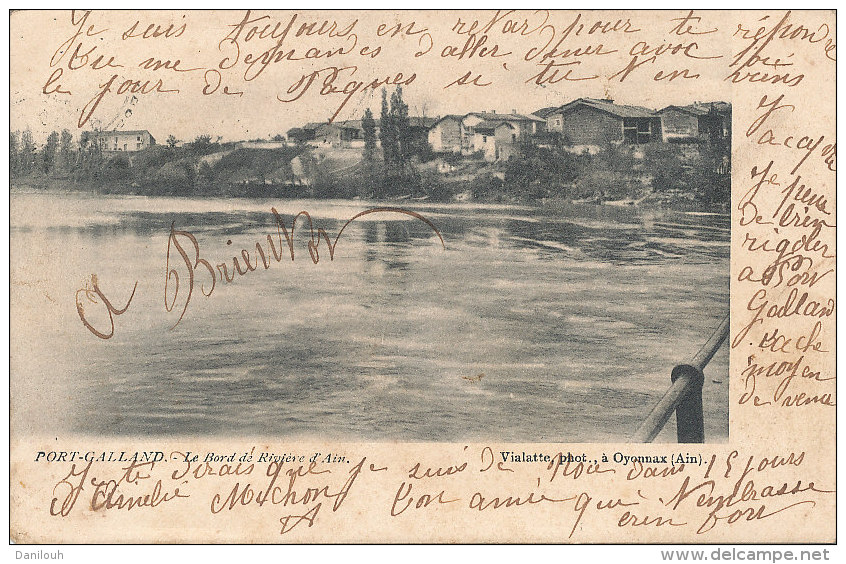 Je suis toujours en retar pour te répondre
tu me demandes d'aller diner avoc toi
le jour de Paques si tu n'en viens
y
acape
Je peux
de bien
rigoler
a Port
Galland
tache
moyen
de venir
a Brienor
PORT-GALLAND. - Le Bord de Rivière d'Ain.
Vialatte, phot., à Oyonnax (Ain).
Je te dirais que je suis de Noce dans 15 jours
d'Amelie Michon ton amie qui n'embrasse
bien fort
Danilouh
www.delcampe.net